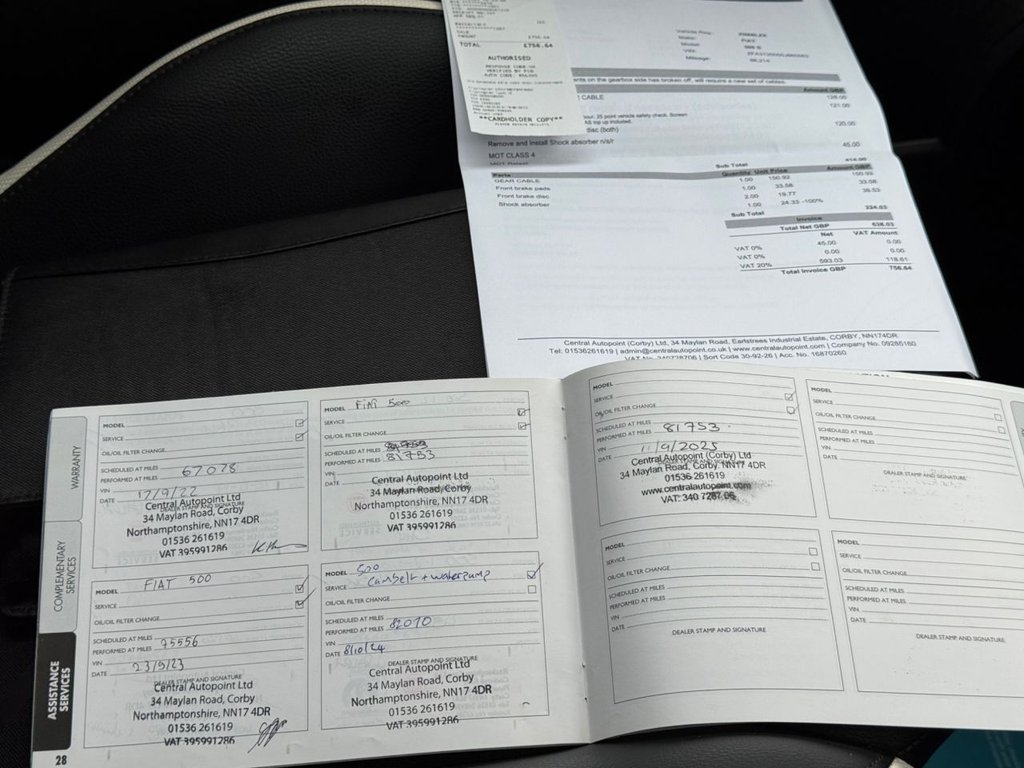 TOTAL £756.64
AUTHORISED
**CARDHOLDER COPY**
ents on the gearbox side has broken off, will require a new set of cables.
Amount GBP
CABLE
121.00
hour. 25 point vehicle safety check. Screen
top up included.
120.00
disc (both)
Remove and Install Shock absorber n/s/r
45.00
MOT CLASS 4
Sub Total
Parts Quantity Unit Price Amount GBP
GEAR CABLE 1.00 150.92 150.92
Front brake pads 1.00 33.58 33.58
Front brake disc 2.00 19.77 39.53
Shock absorber 1.00 24.33 -100%
Sub Total 224.03
Invoice
Total Net GBP 638.03
Net VAT Amount
VAT 0% 45.00 0.00
VAT 0% 0.00 0.00
VAT 20% 593.03 118.61
Total Invoice GBP 756.64
Central Autopoint (Corby) Ltd, 34 Maylan Road, Earlstrees Industrial Estate, CORBY, NN174DR.
Tel: 01536261619 | admin@centralautopoint.co.uk | www.centralautopoint.com | Company No. 09285160
VAT No. 340728706 | Sort Code 30-92-26 | Acc. No. 16870260
WARRANTY
COMPLEMENTARY SERVICES
ASSISTANCE SERVICES
28
MODEL
SERVICE
OIL/OIL FILTER CHANGE
SCHEDULED AT MILES 67078
PERFORMED AT MILES
VIN
DATE 17/9/22
DEALER STAMP AND SIGNATURE
Central Autopoint Ltd
34 Maylan Road, Corby
Northamptonshire, NN17 4DR
01536 261619
VAT 395991286
MODEL FIAT 500
SERVICE
OIL/OIL FILTER CHANGE
SCHEDULED AT MILES
PERFORMED AT MILES 81753
VIN
DATE
Central Autopoint Ltd
34 Maylan Road, Corby
Northamptonshire, NN17 4DR
01536 261619
VAT 395991286
MODEL FIAT 500
SERVICE
OIL/OIL FILTER CHANGE
SCHEDULED AT MILES 75556
PERFORMED AT MILES
VIN
DATE 23/9/23
DEALER STAMP AND SIGNATURE
Central Autopoint Ltd
34 Maylan Road, Corby
Northamptonshire, NN17 4DR
01536 261619
VAT 395991286
MODEL 500
SERVICE Cambelt + waterpump
OIL/OIL FILTER CHANGE
SCHEDULED AT MILES
PERFORMED AT MILES 82010
VIN
DATE 8/10/24
DEALER STAMP AND SIGNATURE
Central Autopoint Ltd
34 Maylan Road, Corby
Northamptonshire, NN17 4DR
01536 261619
VAT 395991286
MODEL
SERVICE
OIL/OIL FILTER CHANGE
SCHEDULED AT MILES 81753
PERFORMED AT MILES
VIN 11/9/2025
DATE
Central Autopoint (Corby) Ltd
34 Maylan Road, Corby. NN17 4DR
01536 261619
www.centralautopoint.com
VAT: 340 7287 06
MODEL
SERVICE
OIL/OIL FILTER CHANGE
SCHEDULED AT MILES
PERFORMED AT MILES
VIN
DATE
DEALER STAMP AND SIGNATURE
MODEL
SERVICE
OIL/OIL FILTER CHANGE
SCHEDULED AT MILES
PERFORMED AT MILES
VIN
DATE
DEALER STAMP AND SIGNATURE
MODEL
SERVICE
OIL/OIL FILTER CHANGE
SCHEDULED AT MILES
PERFORMED AT MILES
VIN
DATE
DEALER STAMP AND SIGNATURE